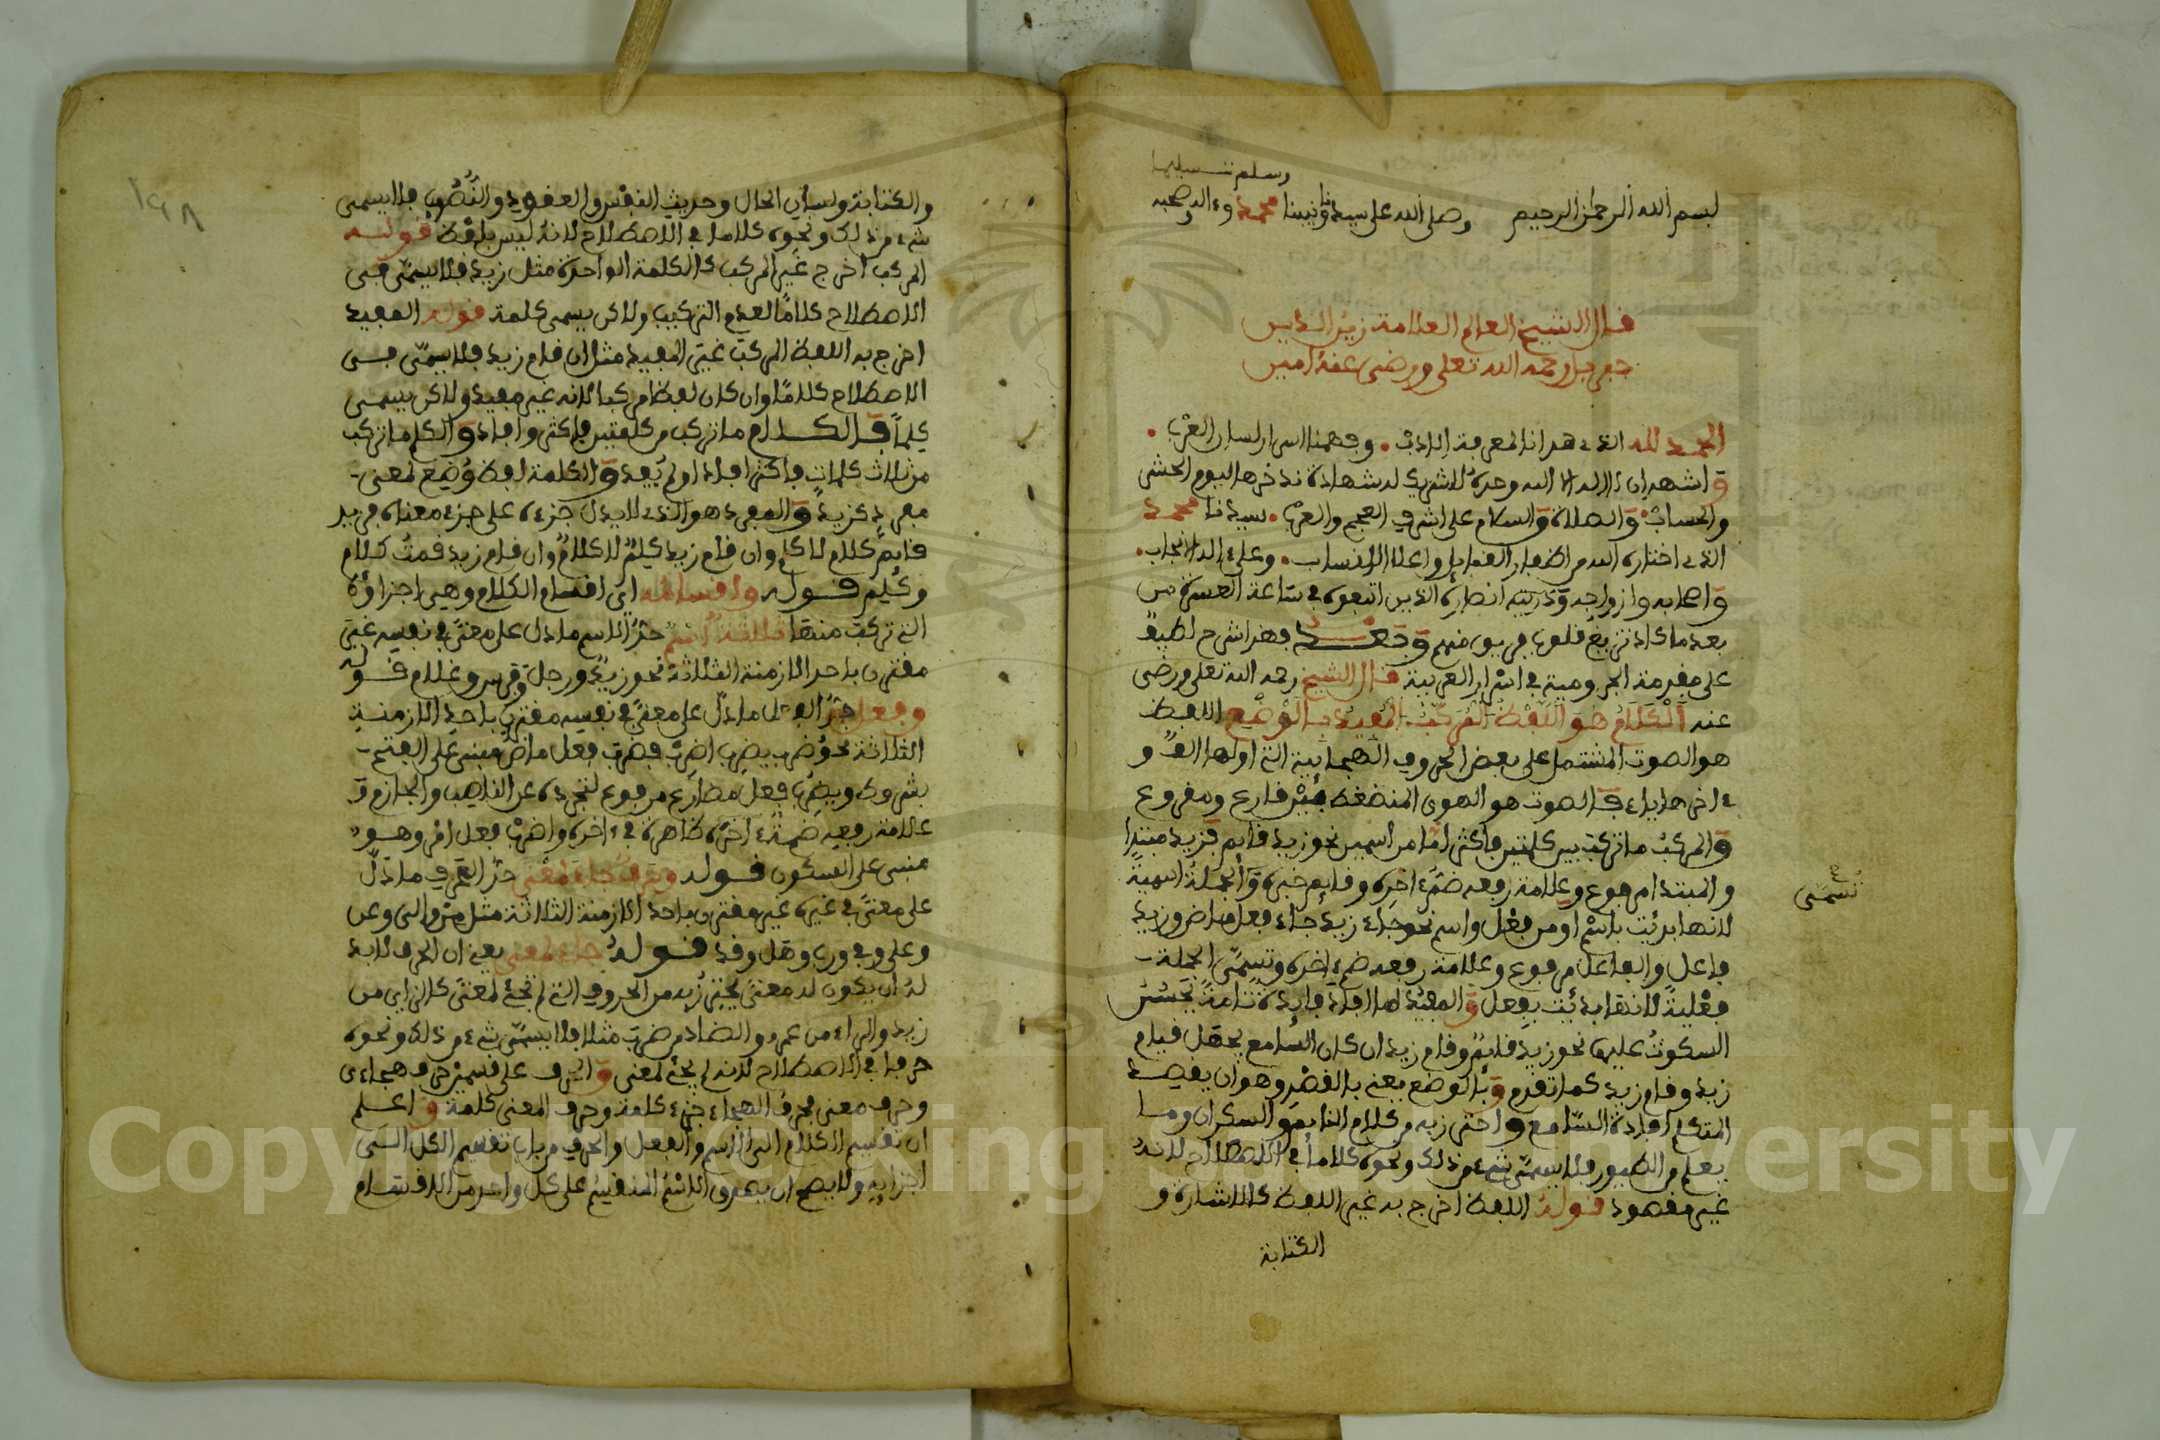 وسلم تسليما
بسم الله الرحمن الرحيم وصلى الله على سيدنا ونبينا محمد وءاله وصحبه
قال الشيخ العالم العلامة زين الدين
جبريل رحمه الله تعلى ورضى عنه امين
الحمد لله الذى هدانا لمعرفة الادب وفهمنا اسرار لسان العرب
واشهد ان لا اله الا الله وحده لا شريك له شهادة ندخرها ليوم الحشر
والحساب والصلاة والسلام على اشرف العجم والعرب سيدنا محمد
الذى اختاره الله من اطهار القبايل واعلا الانساب وعلى ءاله الانجاب
واصحابه وازواجه وذريته انصاره الذين اتبعوه فى ساعة العسرة من
بعد ما كاد تزيغ قلوب فريق منهم وبعد فهذا شرح لطيف
على مقدمة الجرومية فى اسرار العربية قال الشيخ رحمه الله تعلى ورضى
عنه الكلام هو اللفظ المركب المفيد بالوضع اللفظ
هو الصوت المشتمل على بعض الحروف الهجاىية التى اولها الف و
ءاخرها ياء فالصوت هو الهوى المنضغط بين قارع ومقروع
والمركب ما تركب من كلمتين فاكثر اما من اسمين نحو زيد قايم فزيد مبتدا
والمبتدا مرفوع وعلامة رفعه ضم ءاخره وقايم خبره والجملة اسمية
لانها بدئت باسم او من فعل واسم نحو جاء زيد جاء فعل ماض وزيد
فاعل والفاعل مرفوع وعلامة رفعه ضم ءاخره وتسمى الجملة
تسمى
فعلية لانها بدئت بفعل والمفيد ما افاد فايدة تامة يحسن
السكوت عليها نحو زيد قايم وقام زيد ان كان السامع يجهل قيام
زيد وقام زيد كما تقدم وبالوضع يعنى بالقصد وهو ان يقصد
المتكلم افادة السامع واحترز به من كلام النايم والسكران وما
يعلم من الطيور فلا يسمى شىء من ذلك ونحوه كلاما فى الاصطلاح لانه
غير مقصود قوله اللفظ اخرج به غير اللفظ كالاشارة و
الكتابة
١٩٨
والكتابة ولسان الحال وحديث النفس والعقود والنصب فلا يسمى
شىء من ذلك ونحوه كلاما فى الاصطلاح لانه ليس بلفظ قوله
المركب اخرج غير المركب كالكلمة الواحدة مثل زيد فلا يسمى فى
الاصطلاح كلاما لعدم التركيب ولاكن يسمى كلمة قوله المفيد
اخرج به اللفظ المركب غير المفيد مثل ان قام زيد فلا يسمى فى
الاصطلاح كلاما وان كان لفظا مركبا لانه غير مفيد ولاكن يسمى
كلما فالكلام ما تركب من كلمتين فاكثر وافاد والكلم ما تركب
من ثلاث كلمات فاكثر افاد او لم يفد والكلمة لفظ وضع لمعنى
مفرد كزيد والمفرد هو الذى لا يدل جزءه على جزء معناه فزيد
قايم كلام لا كلم وان قام زيد كلم لا كلام وان قام زيد قمت كلام
وكلم قوله واقسامه اى اقسام الكلام وهى اجزاؤه
التى تركب منها ثلاثة اسم حد الاسم ما دل على معنى فى نفسه غير
مقترن باحد الازمنة الثلاثة نحو زيد ورجل وفرس وغلام قوله
وفعل حد الفعل ما دل على معنى فى نفسه مقترن باحد الازمنة
الثلاثة نحو ضرب يضرب اضرب فضرب فعل ماض مبنى على الفتح
بشروط ويضرب فعل مضارع مرفوع لتجرده عن الناصب والجازم و
علامة رفعه ضمة ءاخره ظاهرة فى ءاخره واضرب فعل امر وهو
مبنى على السكون قوله وحرف جاء لمعنى حد الحرف ما دل
على معنى فى غيره غير مقترن باحد الازمنة الثلاثة مثل من والى وعن
وعلى وفى ورب وهل وقد قوله جاء لمعنى يعنى ان الحرف لابد
له ان يكون له معنى يحترز به من الحروف التى لم تجئ لمعنى كالزاى من
زيد والراء من عمرو والضاد من ضرب مثلا فلا يسمى شىء من ذلك ونحوه
حرفا فى الاصطلاح لانه لم يجئ لمعنى والحرف على قسمين حرف هجاء
وحرف معنى فحرف الهجاء جزء كلمة وحرف المعنى كلمة واعلم
ان تقسيم الكلام الى الاسم والفعل والحرف من باب تقسيم الكل الى
اجزايه ولا يصح ان يصدق الاسم المنقسم على كل واحد من الاقسام
Copyright © King Saud University